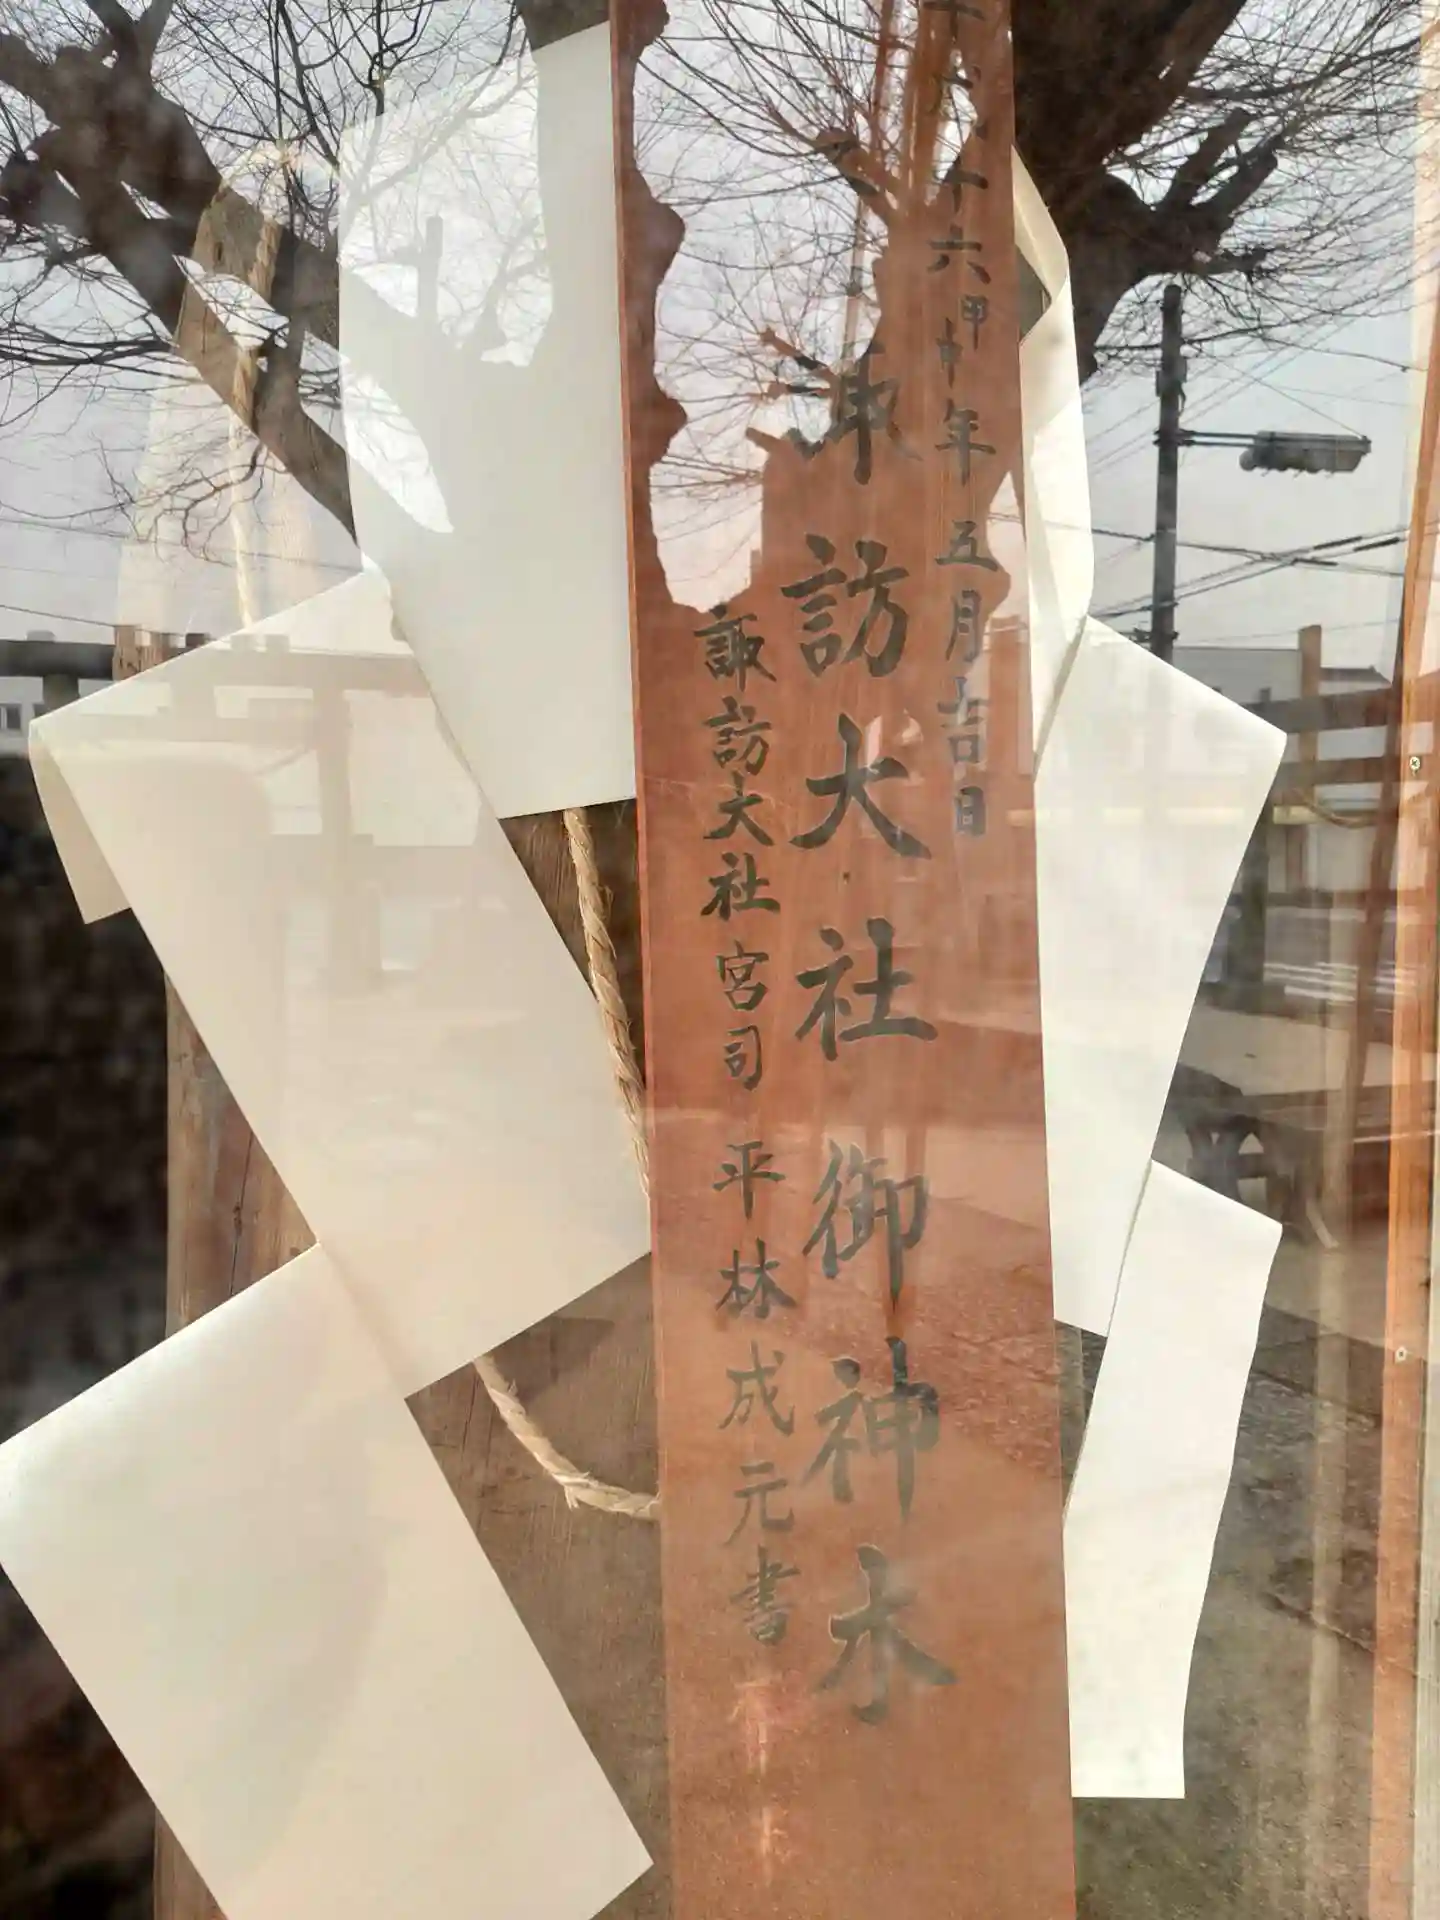 平成十六甲申年五月吉日
諏訪大社御神木
諏訪大社宮司 平林成元書